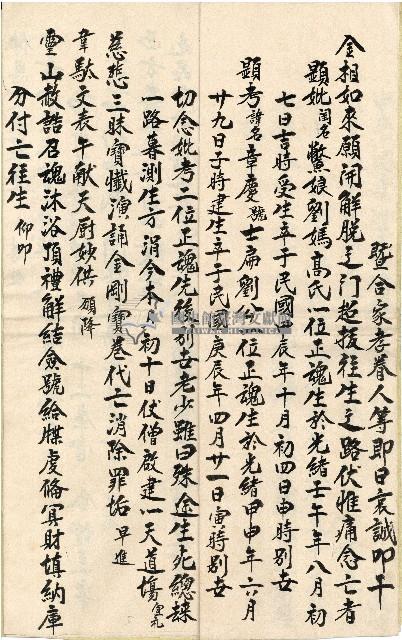 暨合家孝眷人等即日哀誠叩干
金相如來願開解脫之門超援往生之路伏惟痛念亡者
顯妣閨名鶯娘劉媽高氏一位正魂生於光緒壬午年八月初
七日吉時受生卒于民國丙辰年十月初四日申時別世
顯考諱名章慶號七扁劉公一位正魂生於光緒甲申年六月
廿九日子時建生卒于民國庚辰年四月廿一日寅時別世
切念妣考二位正魂先後別世老少雖曰殊途生死總歸
一路莫測生方涓今本月初十日伏僧啟建一天道場宣礼
慈悲三昧寶懺演誦金剛寶卷代亡消除罪垢 早進
韋馱文表午献天厨妙供 頒降
雲山赦誥召魂沐浴頂禮解結僉號給牒虔備冥財填納庫
分付亡往生 仰叩